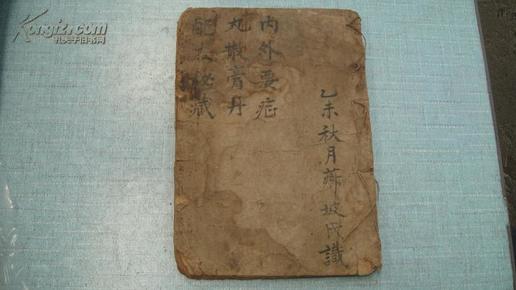 乙未秋月蘇坡氏識
内外要症
丸散膏丹
配方秘藏
Kongfz.com
孔夫子旧书网